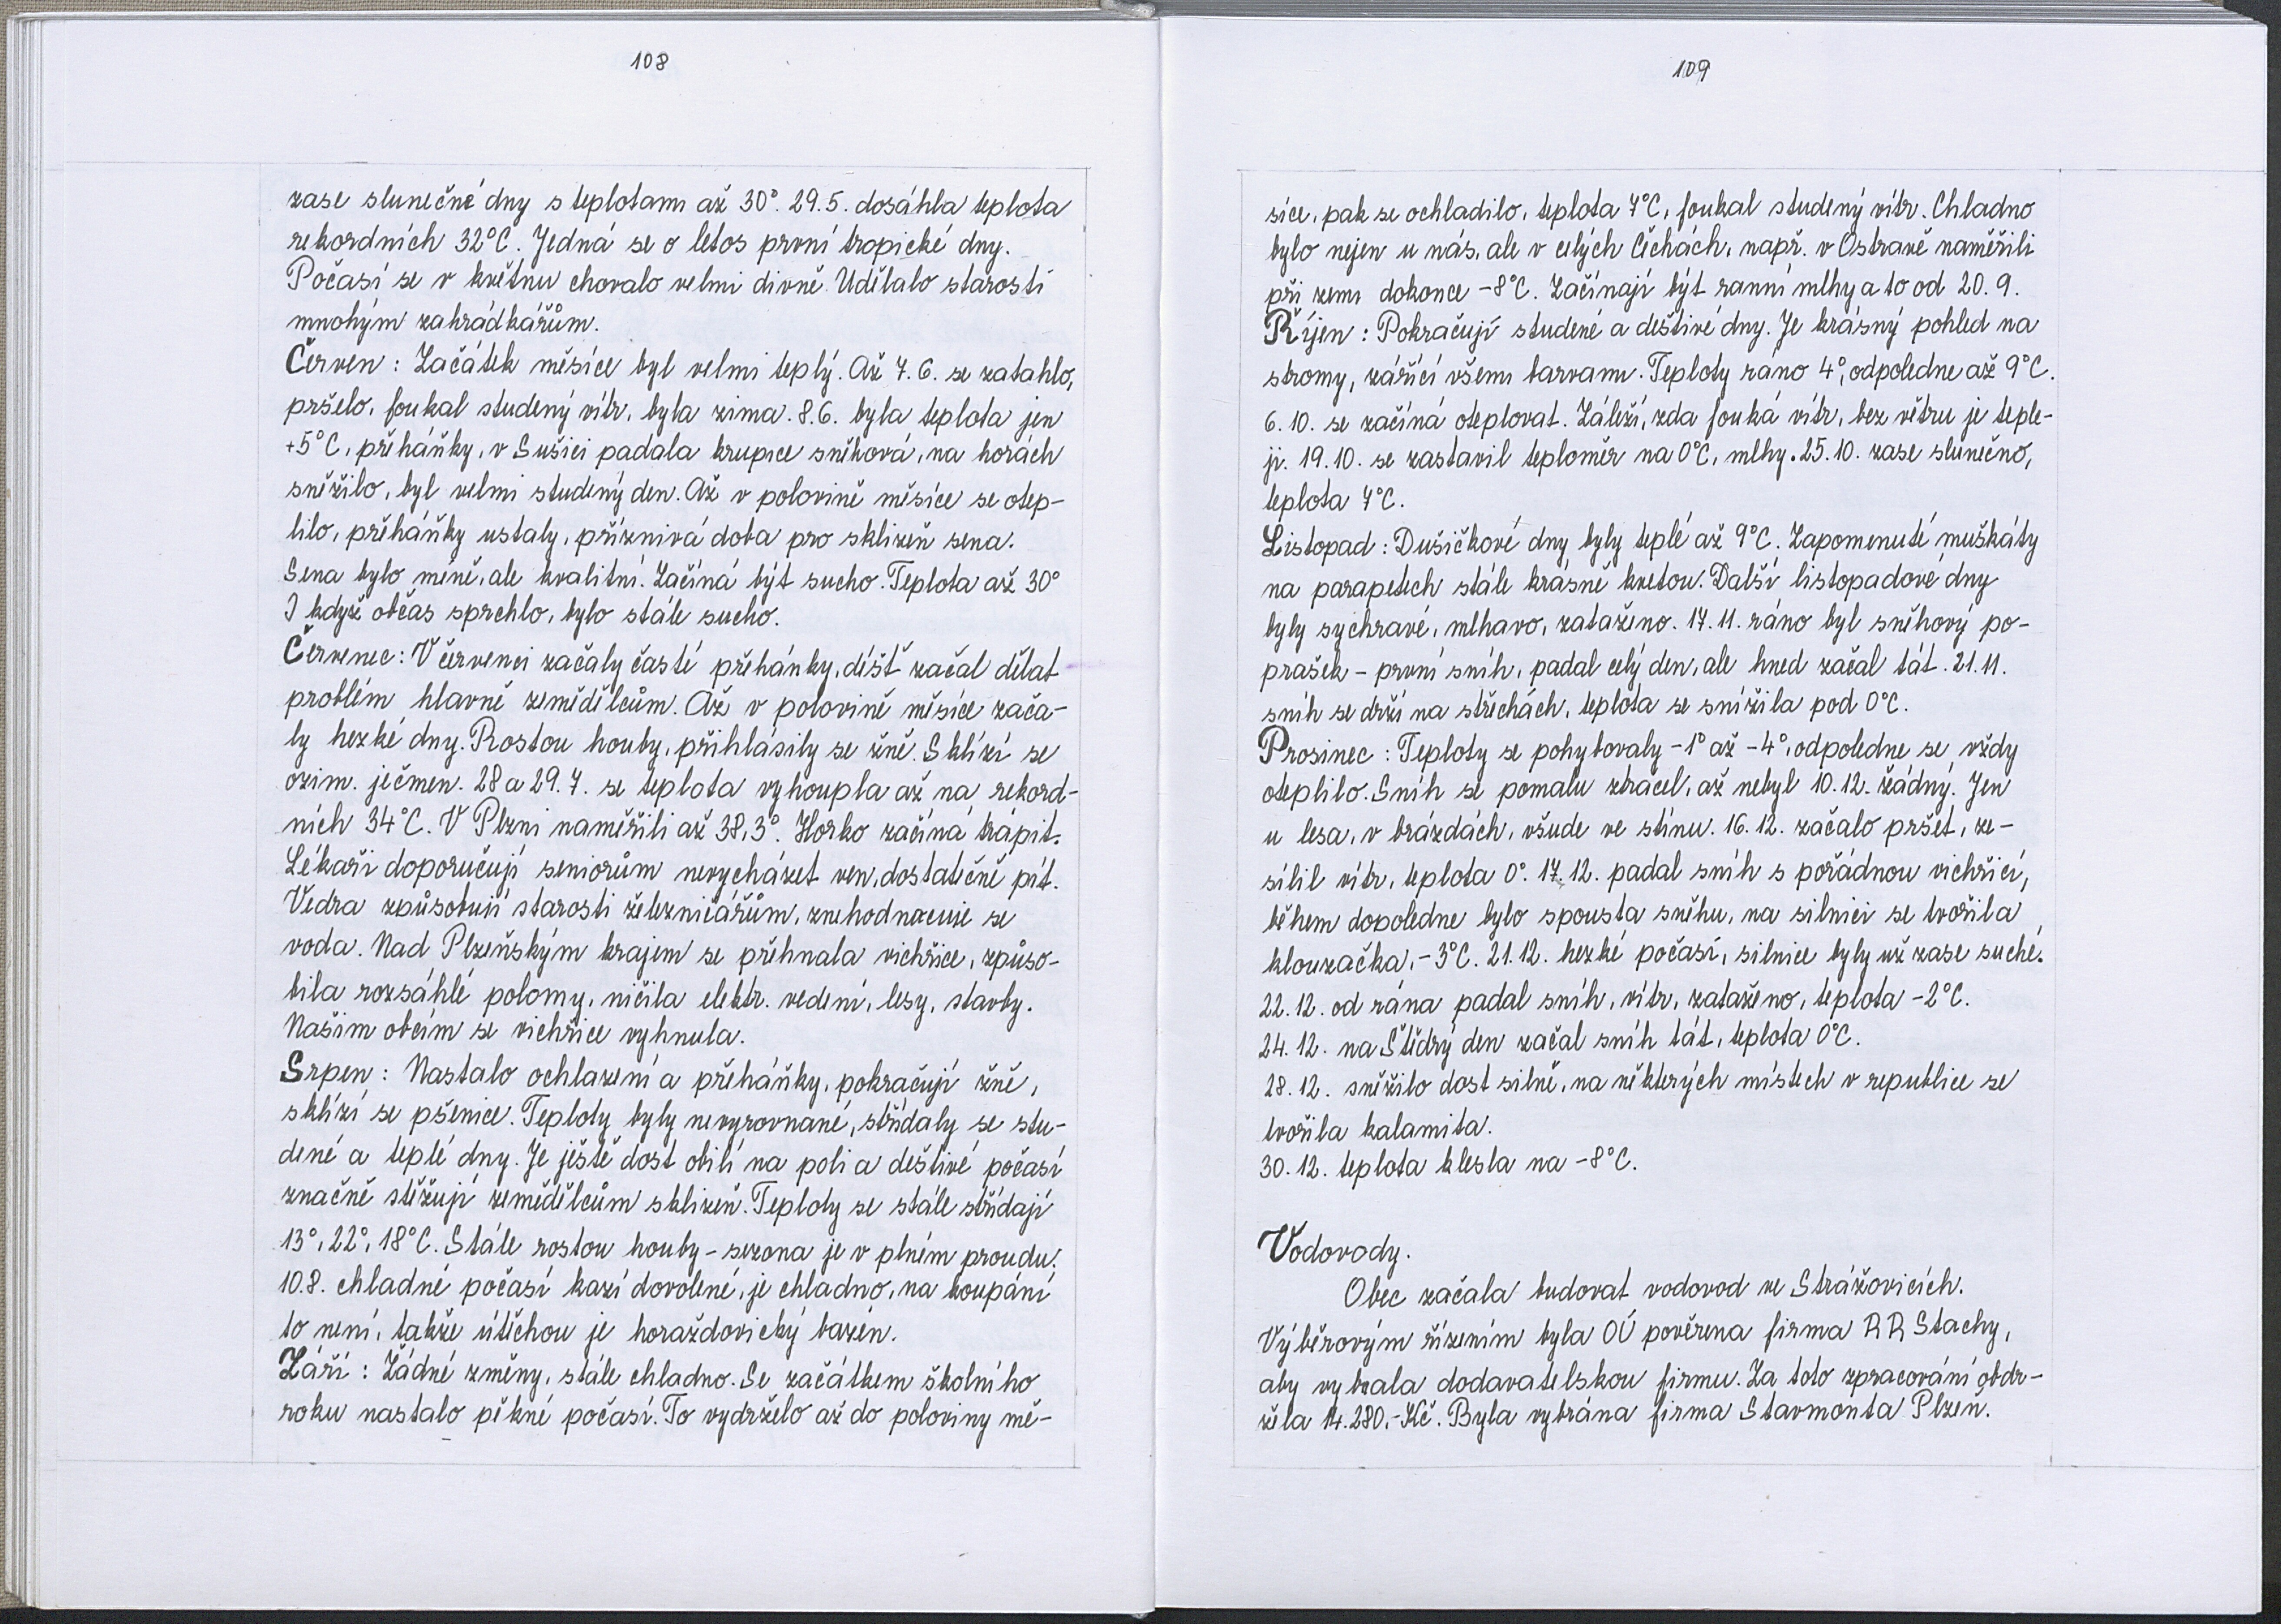 108
zase slunečné dny s teplotami až 30°. 29.5. dosáhla teplota
rekordních 32°C. Jedná se o letos první tropické dny.
Počasí se v květnu chovalo velmi divně. Udělalo starosti
mnohým zahrádkářům.
Červen: Začátek měsíce byl velmi teplý. Až 7.6. se zatáhlo,
pršelo, foukal studený vítr, byla zima. 8.6. byla teplota jen
+5°C, přeháňky, v Sušici padala krupice sněhová, na horách
sněžilo, byl velmi studený den. Až v polovině měsíce se otep-
lilo, přeháňky ustaly, příznivá doba pro sklizeň sena.
Sena bylo méně, ale kvalitní. Začíná být sucho. Teplota až 30°
I když občas sprchlo, bylo stále sucho.
Červenec: V červenci začaly časté přehánky, déšť začal dělat
problém hlavně zemědělcům. Až v polovině měsíce zača-
ly hezké dny. Rostou houby, přihlásily se žně. Sklízí se
ozim. ječmen. 28 a 29.7. se teplota vyhoupla až na rekord-
ních 34°C. V Plzni naměřili až 38,3°. Horko začíná trápit.
Lékaři doporučují seniorům nevycházet ven, dostatečně pít.
Vedra způsobují starosti železničářům, znehodnocuje se
voda. Nad Plzeňským krajem se přehnala vichřice, způso-
bila rozsáhlé polomy, ničila elektr. vedení, lesy, stavby.
Našim obcím se vichřice vyhnula.
Srpen: Nastalo ochlazení a přeháňky, pokračují žně,
sklízí se pšenice. Teploty byly nevyrovnané, střídaly se stu-
dené a teplé dny. Je ještě dost obilí na poli a deštivé počasí
značně stěžují zemědělcům sklizeň. Teploty se stále střídají
13°, 22°, 18°C. Stále rostou houby - sezona je v plném proudu.
10.8. chladné počasí kazí dovolené, je chladno, na koupání
to není, takže útěchou je horažďovický bazén.
Září: Žádné změny, stále chladno. Se začátkem školního
roku nastalo pěkné počasí. To vydrželo až do poloviny mě-
109
síce, pak se ochladilo, teplota 7°C, foukal studený vítr. Chladno
bylo nejen u nás, ale v celých Čechách, např. v Ostravě naměřili
při zemi dokonce -8°C. Začínají být ranní mlhy a to od 20.9.
Říjen: Pokračují studené a deštivé dny. Je krásný pohled na
stromy, zářící všemi barvami. Teploty ráno 4°, odpoledne až 9°C.
6.10. se začíná oteplovat. Záleží, zda fouká vítr, bez větru je teple-
ji. 19.10. se zastavil teploměr na 0°C, mlhy. 25.10. zase slunečno,
teplota 7°C.
Listopad: Dušičkové dny byly teplé až 9°C. Zapomenuté muškáty
na parapetech stále krásně kvetou. Další listopadové dny
byly sychravé, mlhavo, zataženo. 17.11. ráno byl sněhový po-
prašek - první sníh, padal celý den, ale hned začal tát. 21.11.
sníh se drží na střechách, teplota se snížila pod 0°C.
Prosinec: Teploty se pohybovaly -1° až -4°, odpoledne se vždy
oteplilo. Sníh se pomalu ztrácel, až nebyl 10.12. žádný. Jen
u lesa, v brázdách, všude ve stínu. 16.12. začalo pršet, ze-
sílil vítr, teplota 0°. 17.12. padal sníh s pořádnou vichřicí,
během dopoledne bylo spousta sněhu, na silnici se tvořila
klouzačka, -3°C. 21.12. hezké počasí, silnice byly už zase suché.
22.12. od rána padal sníh, vítr, zataženo, teplota -2°C.
24.12. na Štědrý den začal sníh tát, teplota 0°C.
28.12. sněžilo dost silně, na některých místech v republice se
tvořila kalamita.
30.12. teplota klesla na -8°C.
Vodovody.
Obec začala budovat vodovod ve Strážovicích.
Výběrovým řízením byla OÚ pověřena firma RR Stachy,
aby vybrala dodavatelskou firmu. Za toto zpracování obdr-
žela 14.280,- Kč. Byla vybrána firma Stavmonta Plzen.